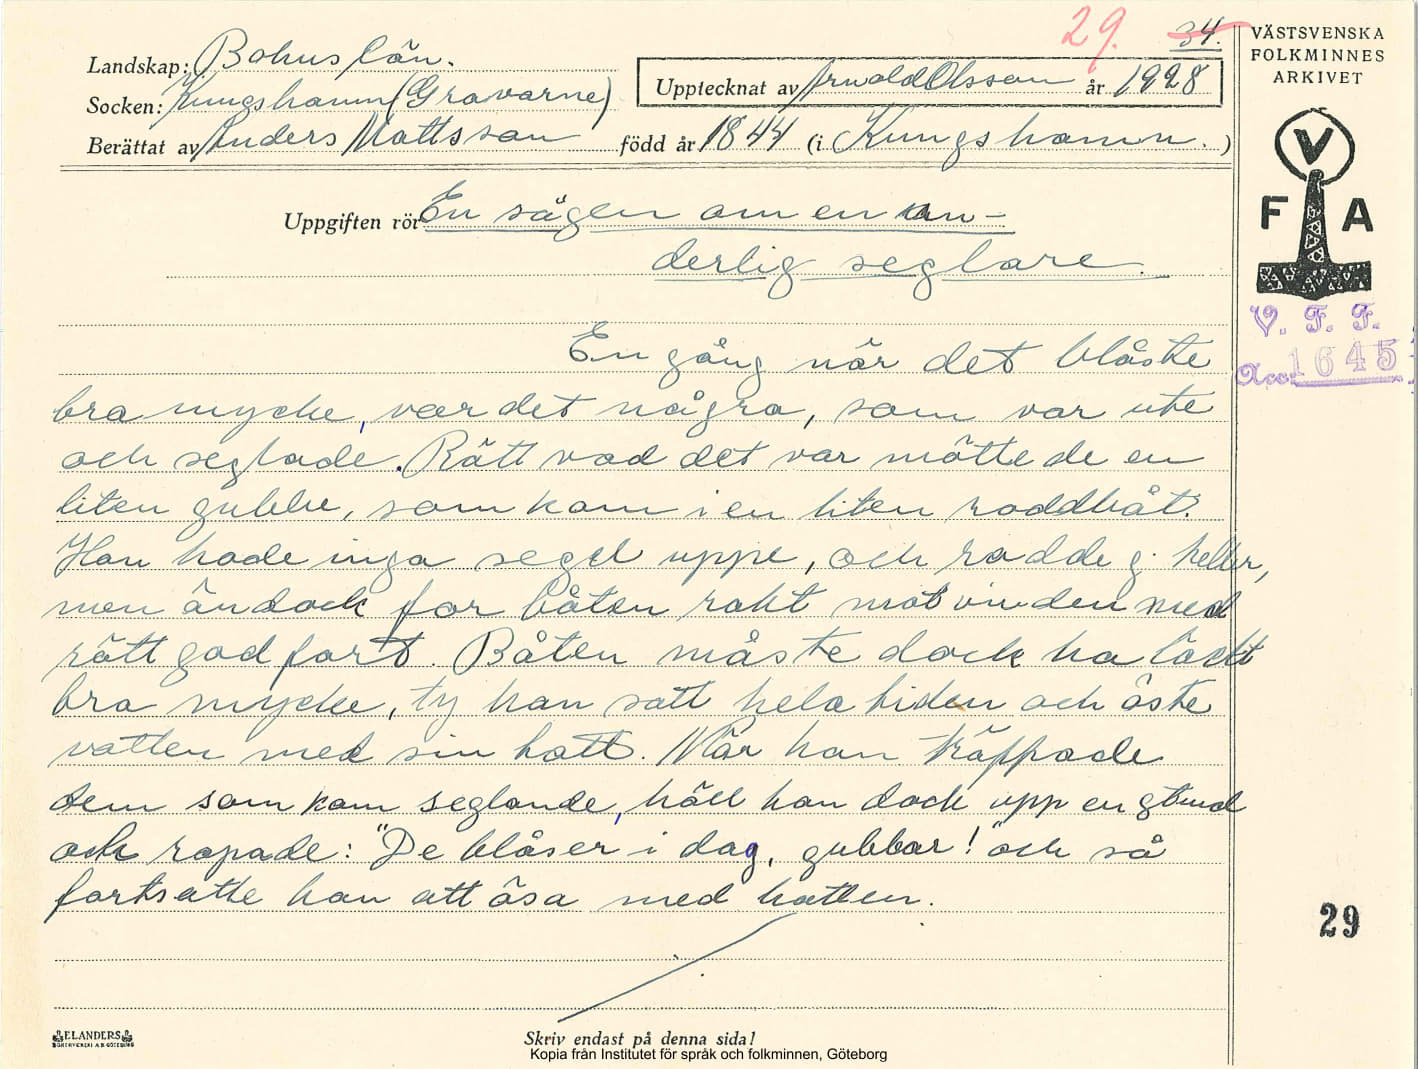 29.
34.
Landskap: Bohuslän.
Socken: Kungshamn (Gravarne)
Upptecknat av Arnold Olsson år 1928
Berättat av Anders Mattsson född år 1844 (i Kungshamn.)
VÄSTSVENSKA
FOLKMINNES
ARKIVET
V
F A
V. F. F.
Acc. 1645
Uppgiften rör En sägen om en un-
derlig seglare.
En gång när det blåste
bra mycke, var det några, som var ute
och seglade. Rätt vad det var mötte de en
liten gubbe, som kom i en liten roddbåt.
Han hade inga segel uppe, och rodde ej heller,
men ändock for båten rakt mot vinden med
rätt god fart. Båten måste dock ha läckt
bra mycke, ty han satt hela tiden och öste
vatten med sin hatt. När han träffade
dem som kom seglande, höll han dock upp en stund
och ropade: "De blåser i dag, gubbar!" och så
fortsatte han att ösa med hatten.
29
ELANDERS
Skriv endast på denna sida!
Kopia från Institutet för språk och folkminnen, Göteborg